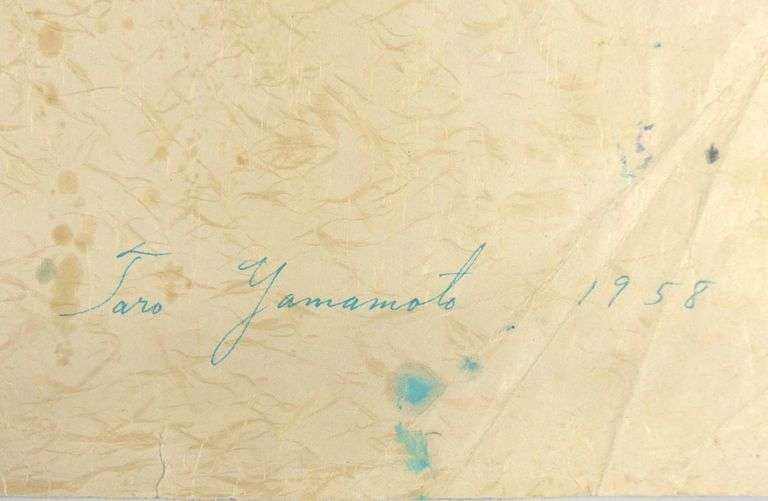 Taro Yamamoto 1958